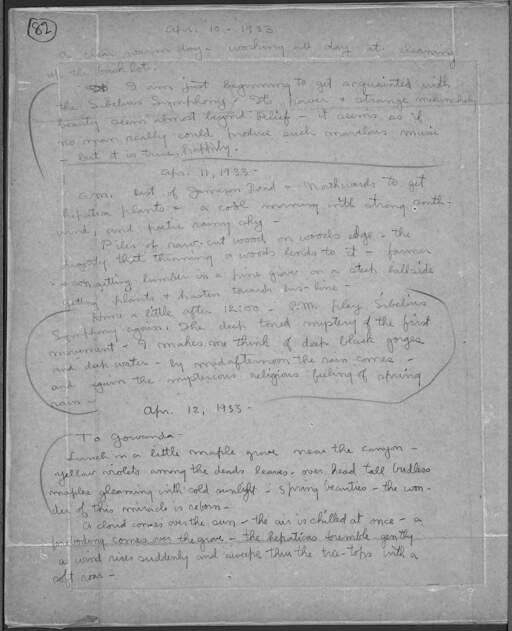 82
Apr. 10 - 1933
A clear warm day - working all day at cleaning
up the back lot.
I am just beginning to get acquainted with
the Sibelius Symphony - Its power & strange melancholy
beauty seem almost beyond belief - it seems as if
no man really could produce such marvelous music
- but it is true, happily.
Apr. 11, 1933 -
A.M. East of Jamison Road & Northwards to get
hepatica plants - a cool morning with strong south-
wind, and poetic rainy sky -
Piles of raw-cut wood on woods edge - the
that thinning a woods lends to it - farmer
getting lumber in a pine grove on a steep hillside
getting plants & hasten towards bus-line -
Home a little after 12:00 - P.M. play Sibelius
Symphony again. The deep toned mystery of the first
movement - It makes me think of deep black gorges
and dark water - by midafternoon the rain comes -
and again the mysterious religious feeling of spring
rain -
Apr. 12, 1933 -
To Gowanda -
Lunch in a little maple grove near the canyon -
yellow violets among the deads leaves - over head tall budless
maples gleaming with cold sunlight - Spring beauties - the won-
der of this miracle is reborn -
A cloud comes over the sun - the air is chilled at once - a
foreboding comes over the grove - the hepaticas tremble gently
a wind rises suddenly and sweeps thru the tree-tops with a
soft roar -